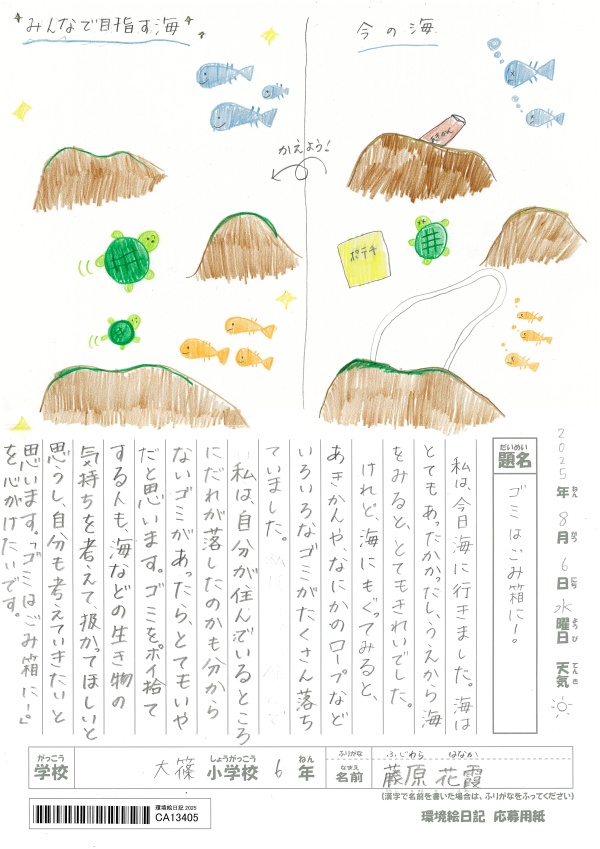 みんなで目指す海
今の海
かえよう!
あきかん
ポテチ
2025年ねん8月がつ6日にち水曜日ようび天気てんき
だいめい
題名
ゴミはごみ箱に!
私は、今日海に行きました。海は
とてもあったかかったし、うえから海
をみると、とてもきれいでした。
けれど、海にもぐってみると、
あきかんや、なにかのロープなど
いろいろなゴミがたくさん落ち
ていました。
私は、自分が住んでいるところ
にだれが落したのかも分から
ないゴミがあったら、とてもいや
だと思います。ゴミをポイ捨て
する人も、海などの生き物の
気持ちを考えて、扱かってほしいと
思うし、自分も考えていきたいと
思います。「ゴミはごみ箱に!」
を心がけたいです。
がっこう
学校
大篠
しょうがっこう
小学校
6
ねん
年
ふりがな
ふじわら はなか
なまえ
名前
藤原 花霞
(漢字で名前を書いた場合は、ふりがなをふってください)
環境絵日記 2025
CA13405
環境絵日記 応募用紙